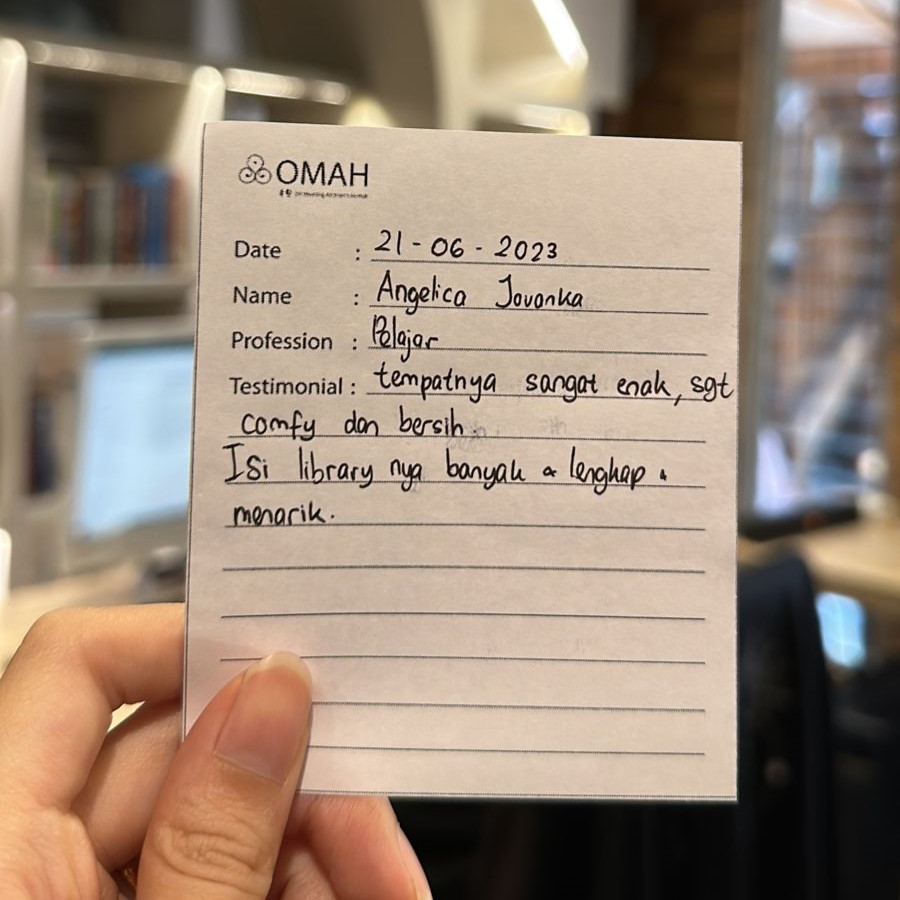 OMAH
Date : 21 - 06 - 2023
Name : Angelica Jovanka
Profession : Pelajar
Testimonial : tempatnya sangat enak, sgt
comfy dan bersih.
Isi library nya banyak & lengkap.
menarik.